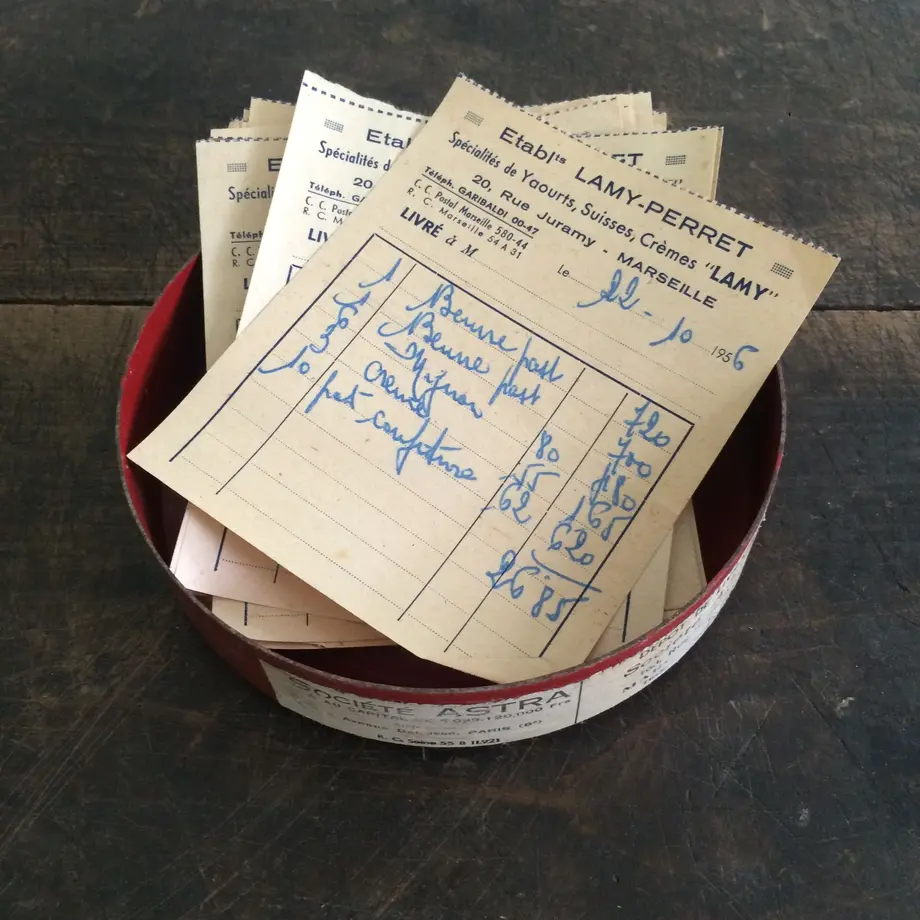 Etablts LAMY-PERRET
Spécialités de Yaourts, Suisses, Crèmes "LAMY"
20, Rue Juramy - MARSEILLE
Téléph. GARIBALDI 00-47
C. C. Postal Marseille 580-44
R. C. Marseille 54 A 31
LIVRÉ à M
Le 22 - 10 1956
1 Beurre past 720
1 Beurre past 700
6 Mignon 80 480
3 creme 55 165
10 pat confiture 62 620
26.85
Etabl
Spécialités d
20
Téléph. GA
C. C. Posta
R. C. M
LIV
E
Spécia
Téléph
C. C.
R. C.
L
RET
SOCIÉTÉ ASTRA
AU CAPITAL
120.000 Frs
PARIS (8e)
R. C. Seine 55 B 11.921
DÉPOT DE